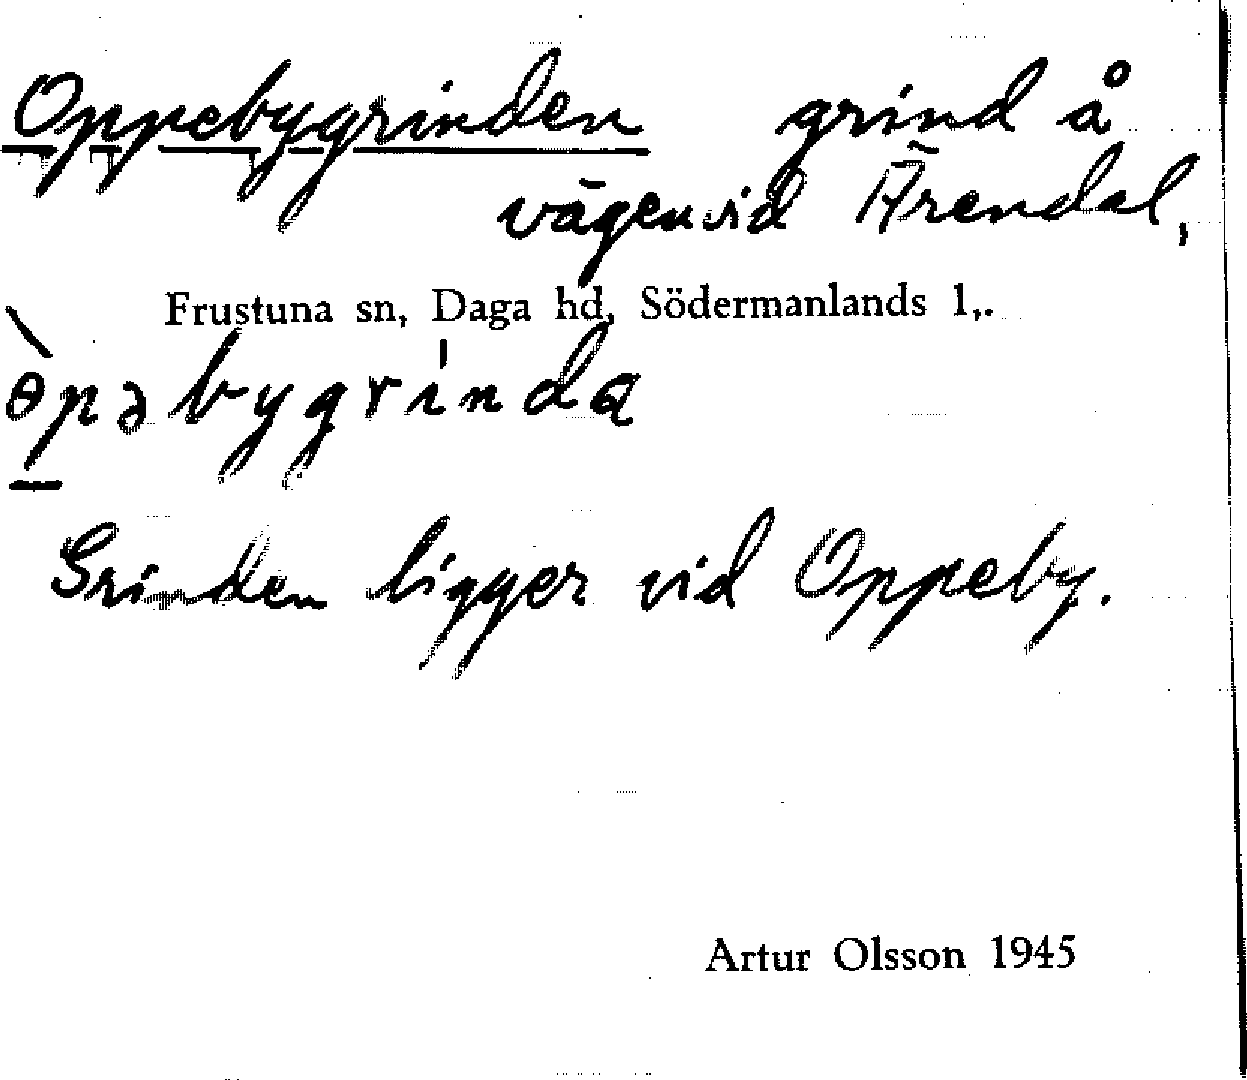 Oppebygrinden grind å
vägen vid Ärendal,
Frustuna sn, Daga hd, Södermanlands l,.
ɵ̀pəbygrinda
Grinden ligger vid Oppeby.
Artur Olsson 1945